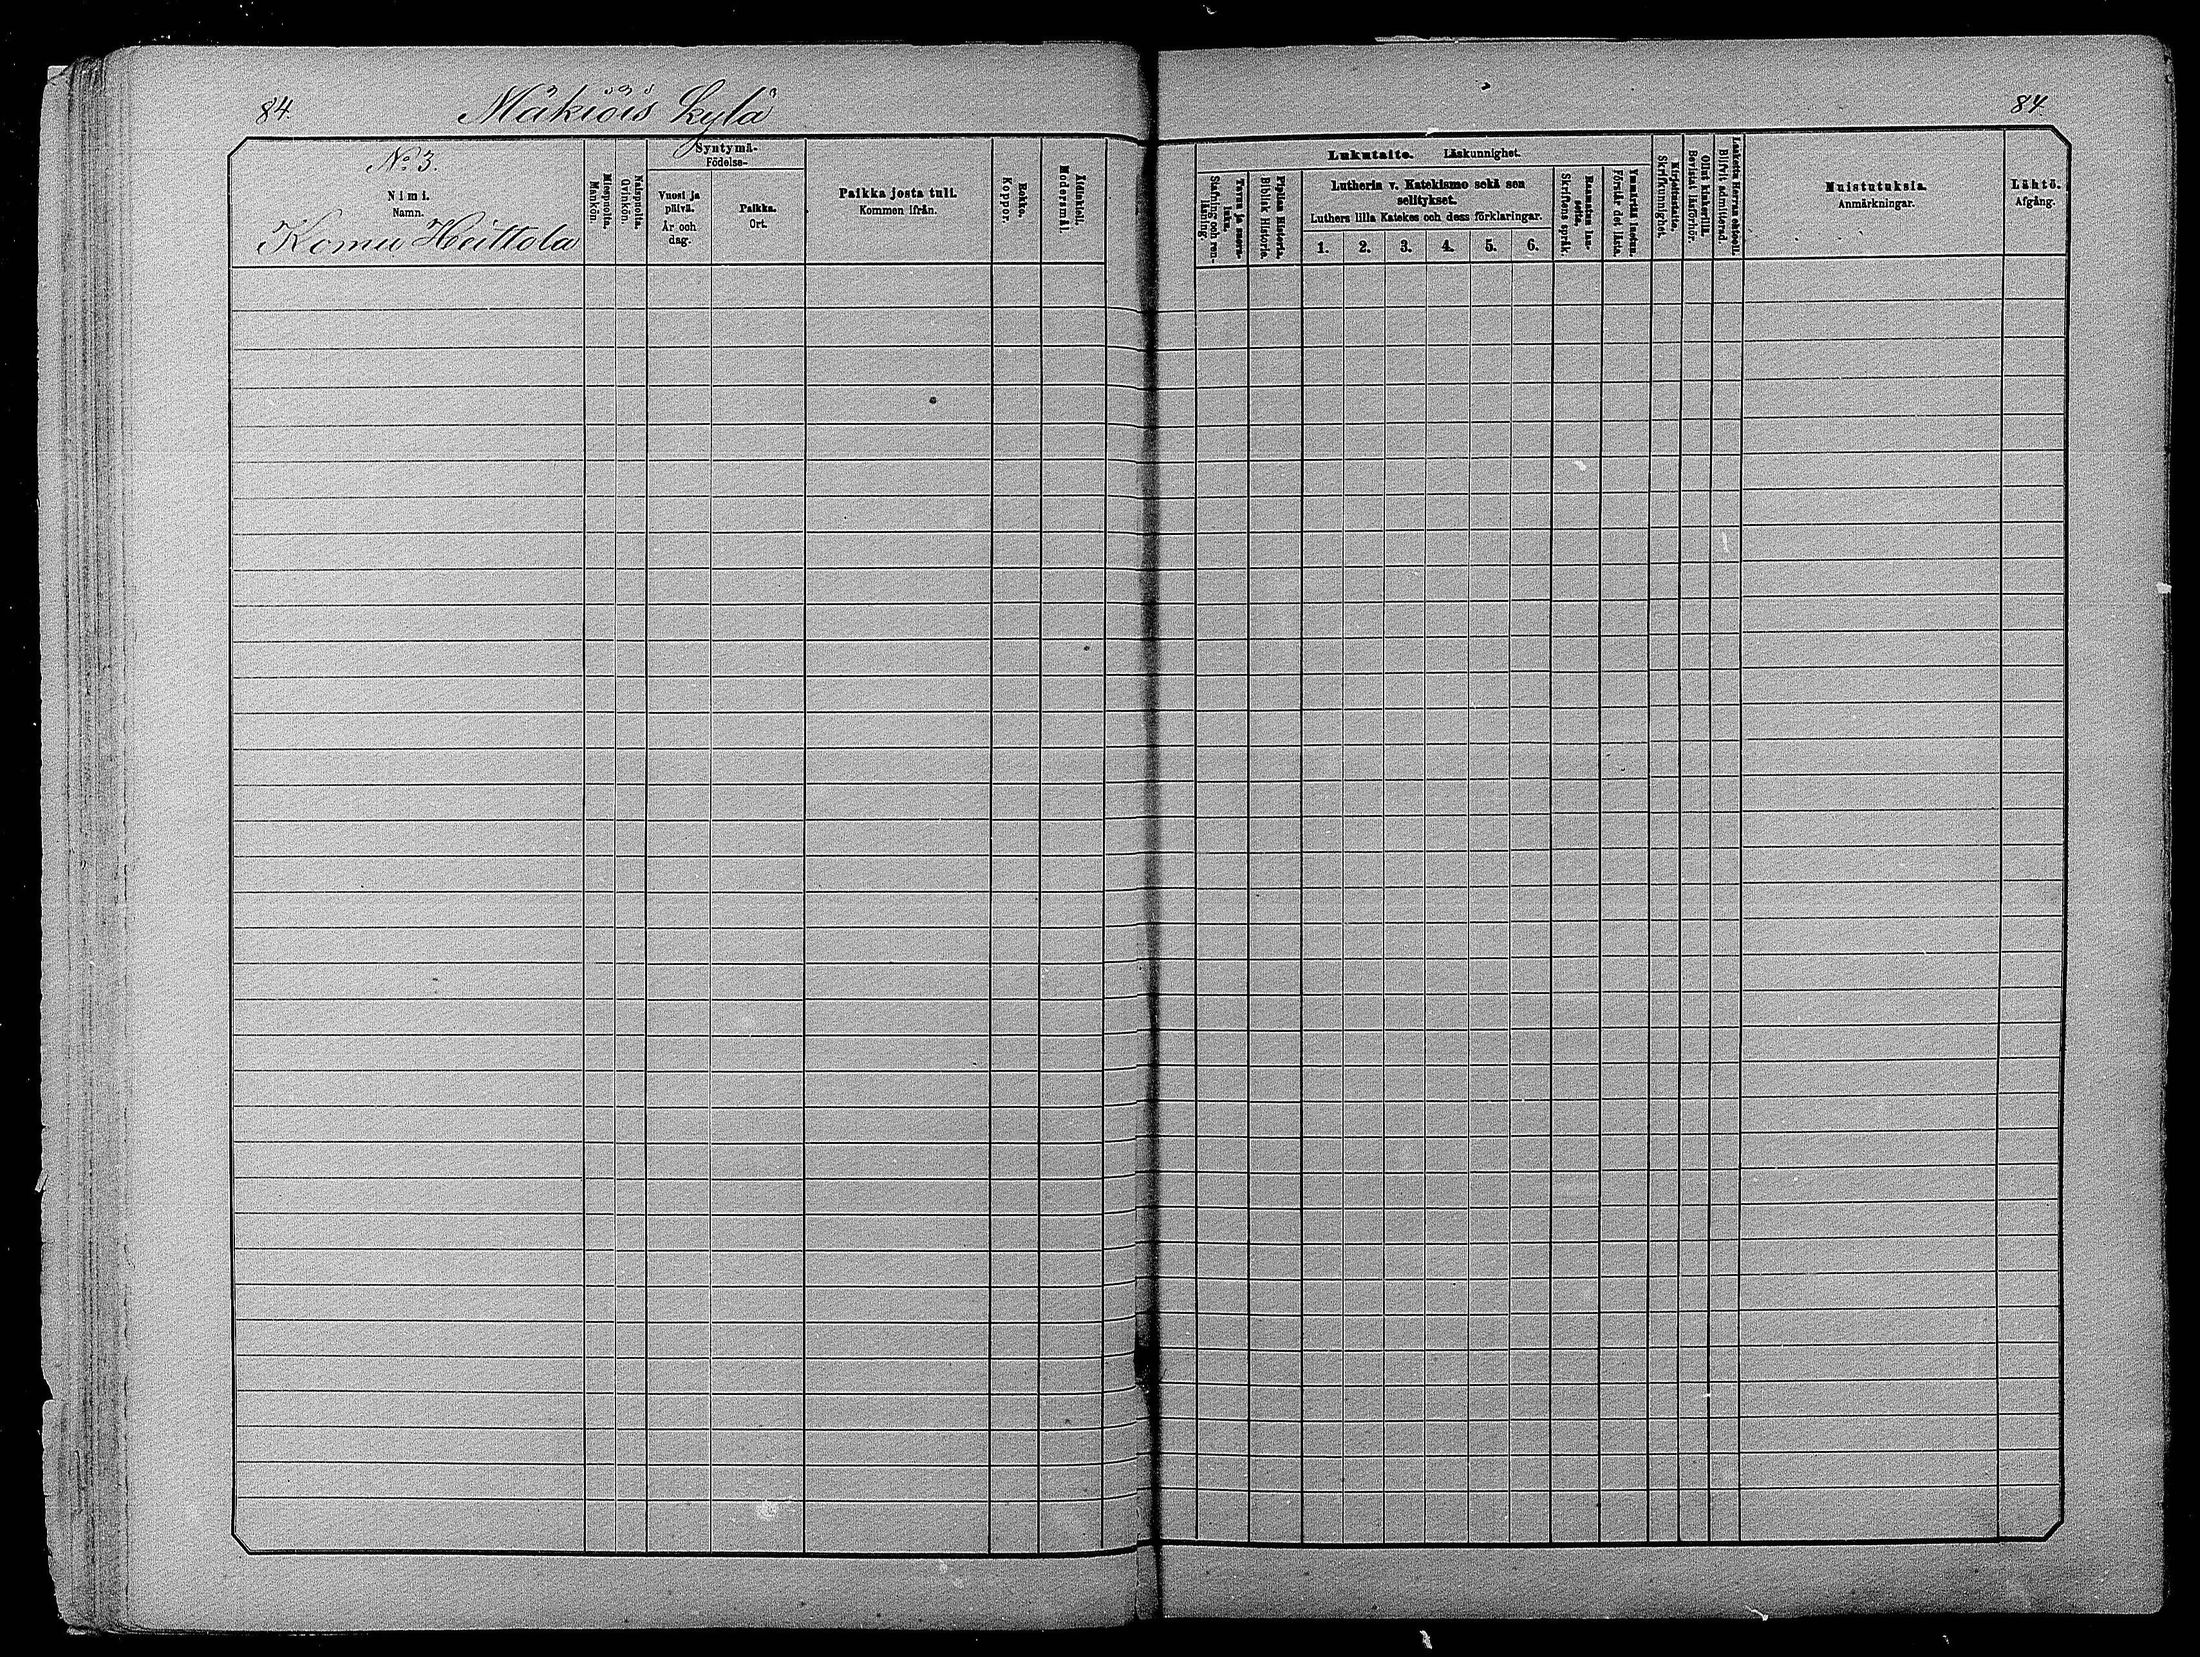 84.
Mäkiöis kylä
84.
No 3.
Nimi.
Namn.
Komu Heittola
Miespuolta.
Mankön.
Naispuolta.
Qvinkön.
Syntymä-
Födelse-
Vuosi ja
päivä.
År och
dag.
Paikka.
Ort.
Paikka josta tuli.
Kommen ifrån.
Rokko.
Koppor.
Äidinkieli.
Modersmål.
Lukutaito. Läskunnighet.
Tavuu ja suora-
luku.
Stafning och ren-
läsning.
Piplian Historia.
Biblisk Historia.
Lutherin v. Katekismo sekä sen
selitykset.
Luthers lilla Katekes och dess förklaringar.
1. 2. 3. 4. 5. 6.
Raamatun lau-
seita.
Skriftens språk.
Ymmärtää luedun.
Förstår det lästa.
Kirjoitustaito.
Skrifkunnighet.
Ollut kinkerillä.
Bevistat läsförhör.
Laskettu Herran ehtooll.
Blifvit admitterad.
Muistutuksia.
Anmärkningar.
Lähtö.
Afgång.